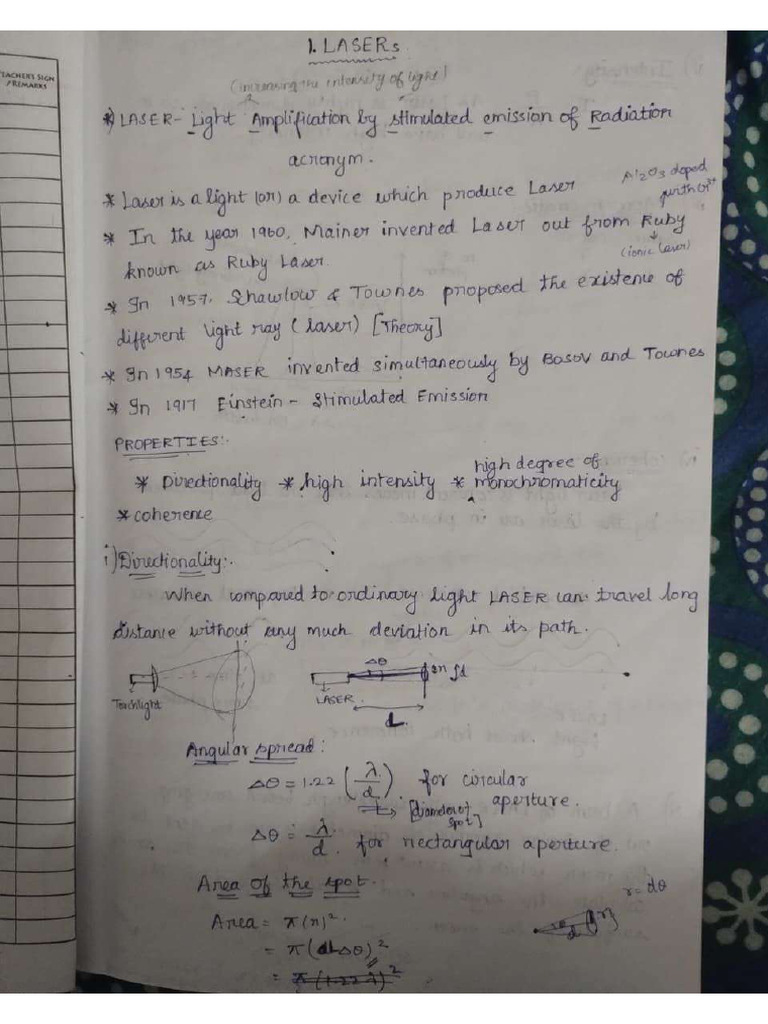 1. LASERs
TEACHER'S SIGN
/REMARKS
(increasing the intensity of light)
*) LASER - Light Amplification by stimulated emission of Radiation
acronym.
Al2O3 doped
with Cr3+
* Laser is a light (or) a device which produce Laser
* In the year 1960, Mainer invented Laser out from Ruby
(ionic laser)
known as Ruby Laser
* In 1957, Shawlow & Townes proposed the existence of
different light ray (laser) [Theory]
* In 1954 MASER invented simultaneously by Bosov and Townes
* In 1917 Einstein - Stimulated Emission
PROPERTIES:-
* Directionality * high intensity * high degree of monochromaticity
* coherence
i) Directionality:-
When compared to ordinary light LASER can travel long
distance without any much deviation in its path.
Torchlight
LASER
Δθ
d
L
Angular spread:
Δθ = 1.22 (λ/d). for circular
aperture.
[diameter of
spot]
Δθ = λ/d. for rectangular aperture.
Area of the spot.
r = dθ
d
Area = π(r)²
= π(dΔθ)²
= π(1.22λ)²